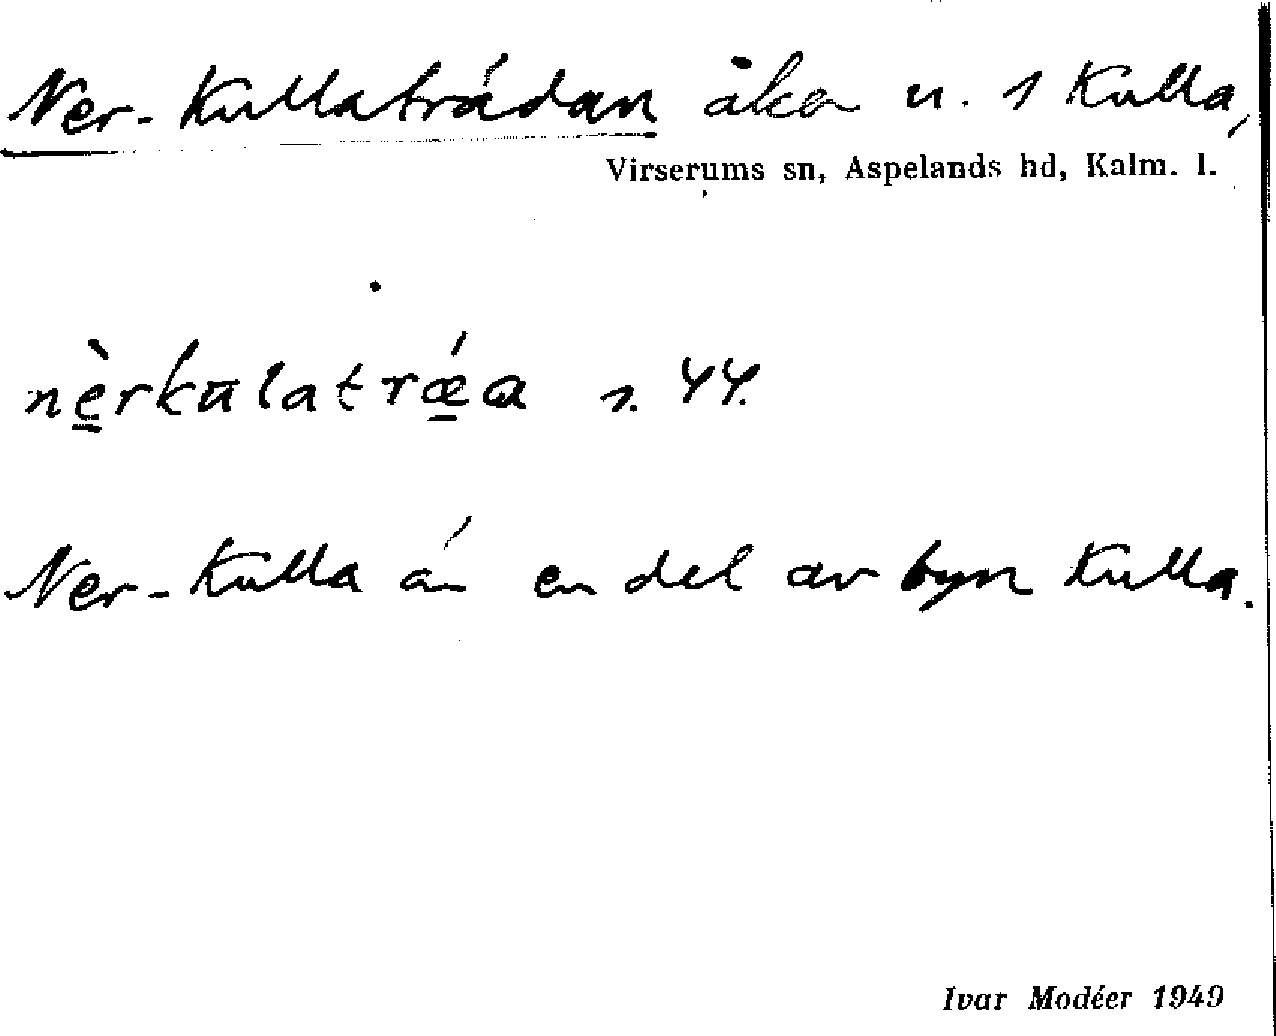 Ner-Kullaträdan åker n. 1 Kulla,
Virserums sn, Aspelands hd, Kalm. l.
nè̱rkūlatrǽ̱a s. 44.
Ner-Kulla är en del av byn Kulla.
Ivar Modéer 1949